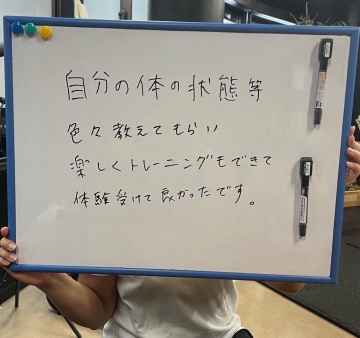 自分の体の状態等
色々教えてもらい
楽しくトレーニングもできて
体験受けて良かったです。